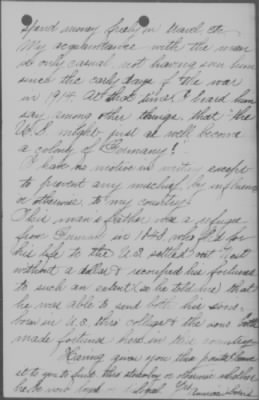 spend money freely in travel, etc.
My acquaintance with the man
is only casual not having seen him
since the early days of the war
in 1914. At that time I heard him
say among other things that "the
U.S. might just as well become
a colony of Germany!"
I have no motive in writing except
to prevent any mischief by influence
or otherwise to my country.
This man's father was a refugee
from Germany in 1848, who fled for
his life to the U.S. settled out West
without a dollar & recouped his fortunes
to such an extent (so he told me) that
he was able to send both his sons,
born in U.S. thro college & the sons both
made fortunes here in this country
Having given you this I leave
it to you to find this or otherwise whether
he be now loyal
Yrs